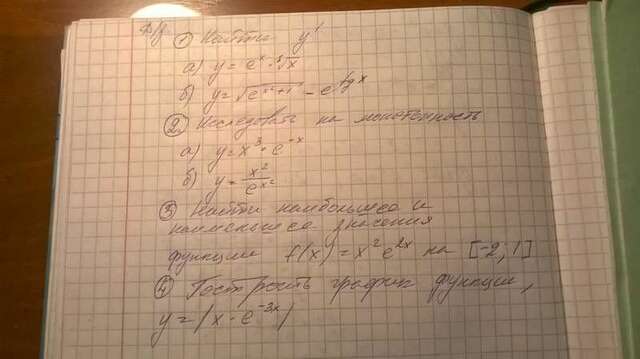 Д/з ① Найти y'
а) y = eˣ · ³√x
б) y = √(eˣ⁺¹) - e^(tg x)
② Исследовать на монотонность
а) y = x³ · e⁻ˣ
б) y = x²/e^(x²)
③ Найти наибольшее и
наименьшее значения
функции f(x) = x² e²ˣ на [-2, 1]
④ Построить график функции,
y = |x · e⁻³ˣ|